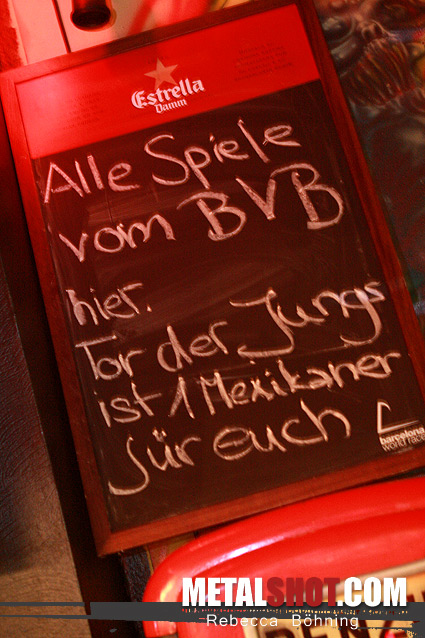 Estrella
Damm
Alle Spiele
vom BVB
hier.
Tor der Jungs
ist 1 Mexikaner
für euch
barcelona
world race
METALSHOT.COM
Rebecca Böhning